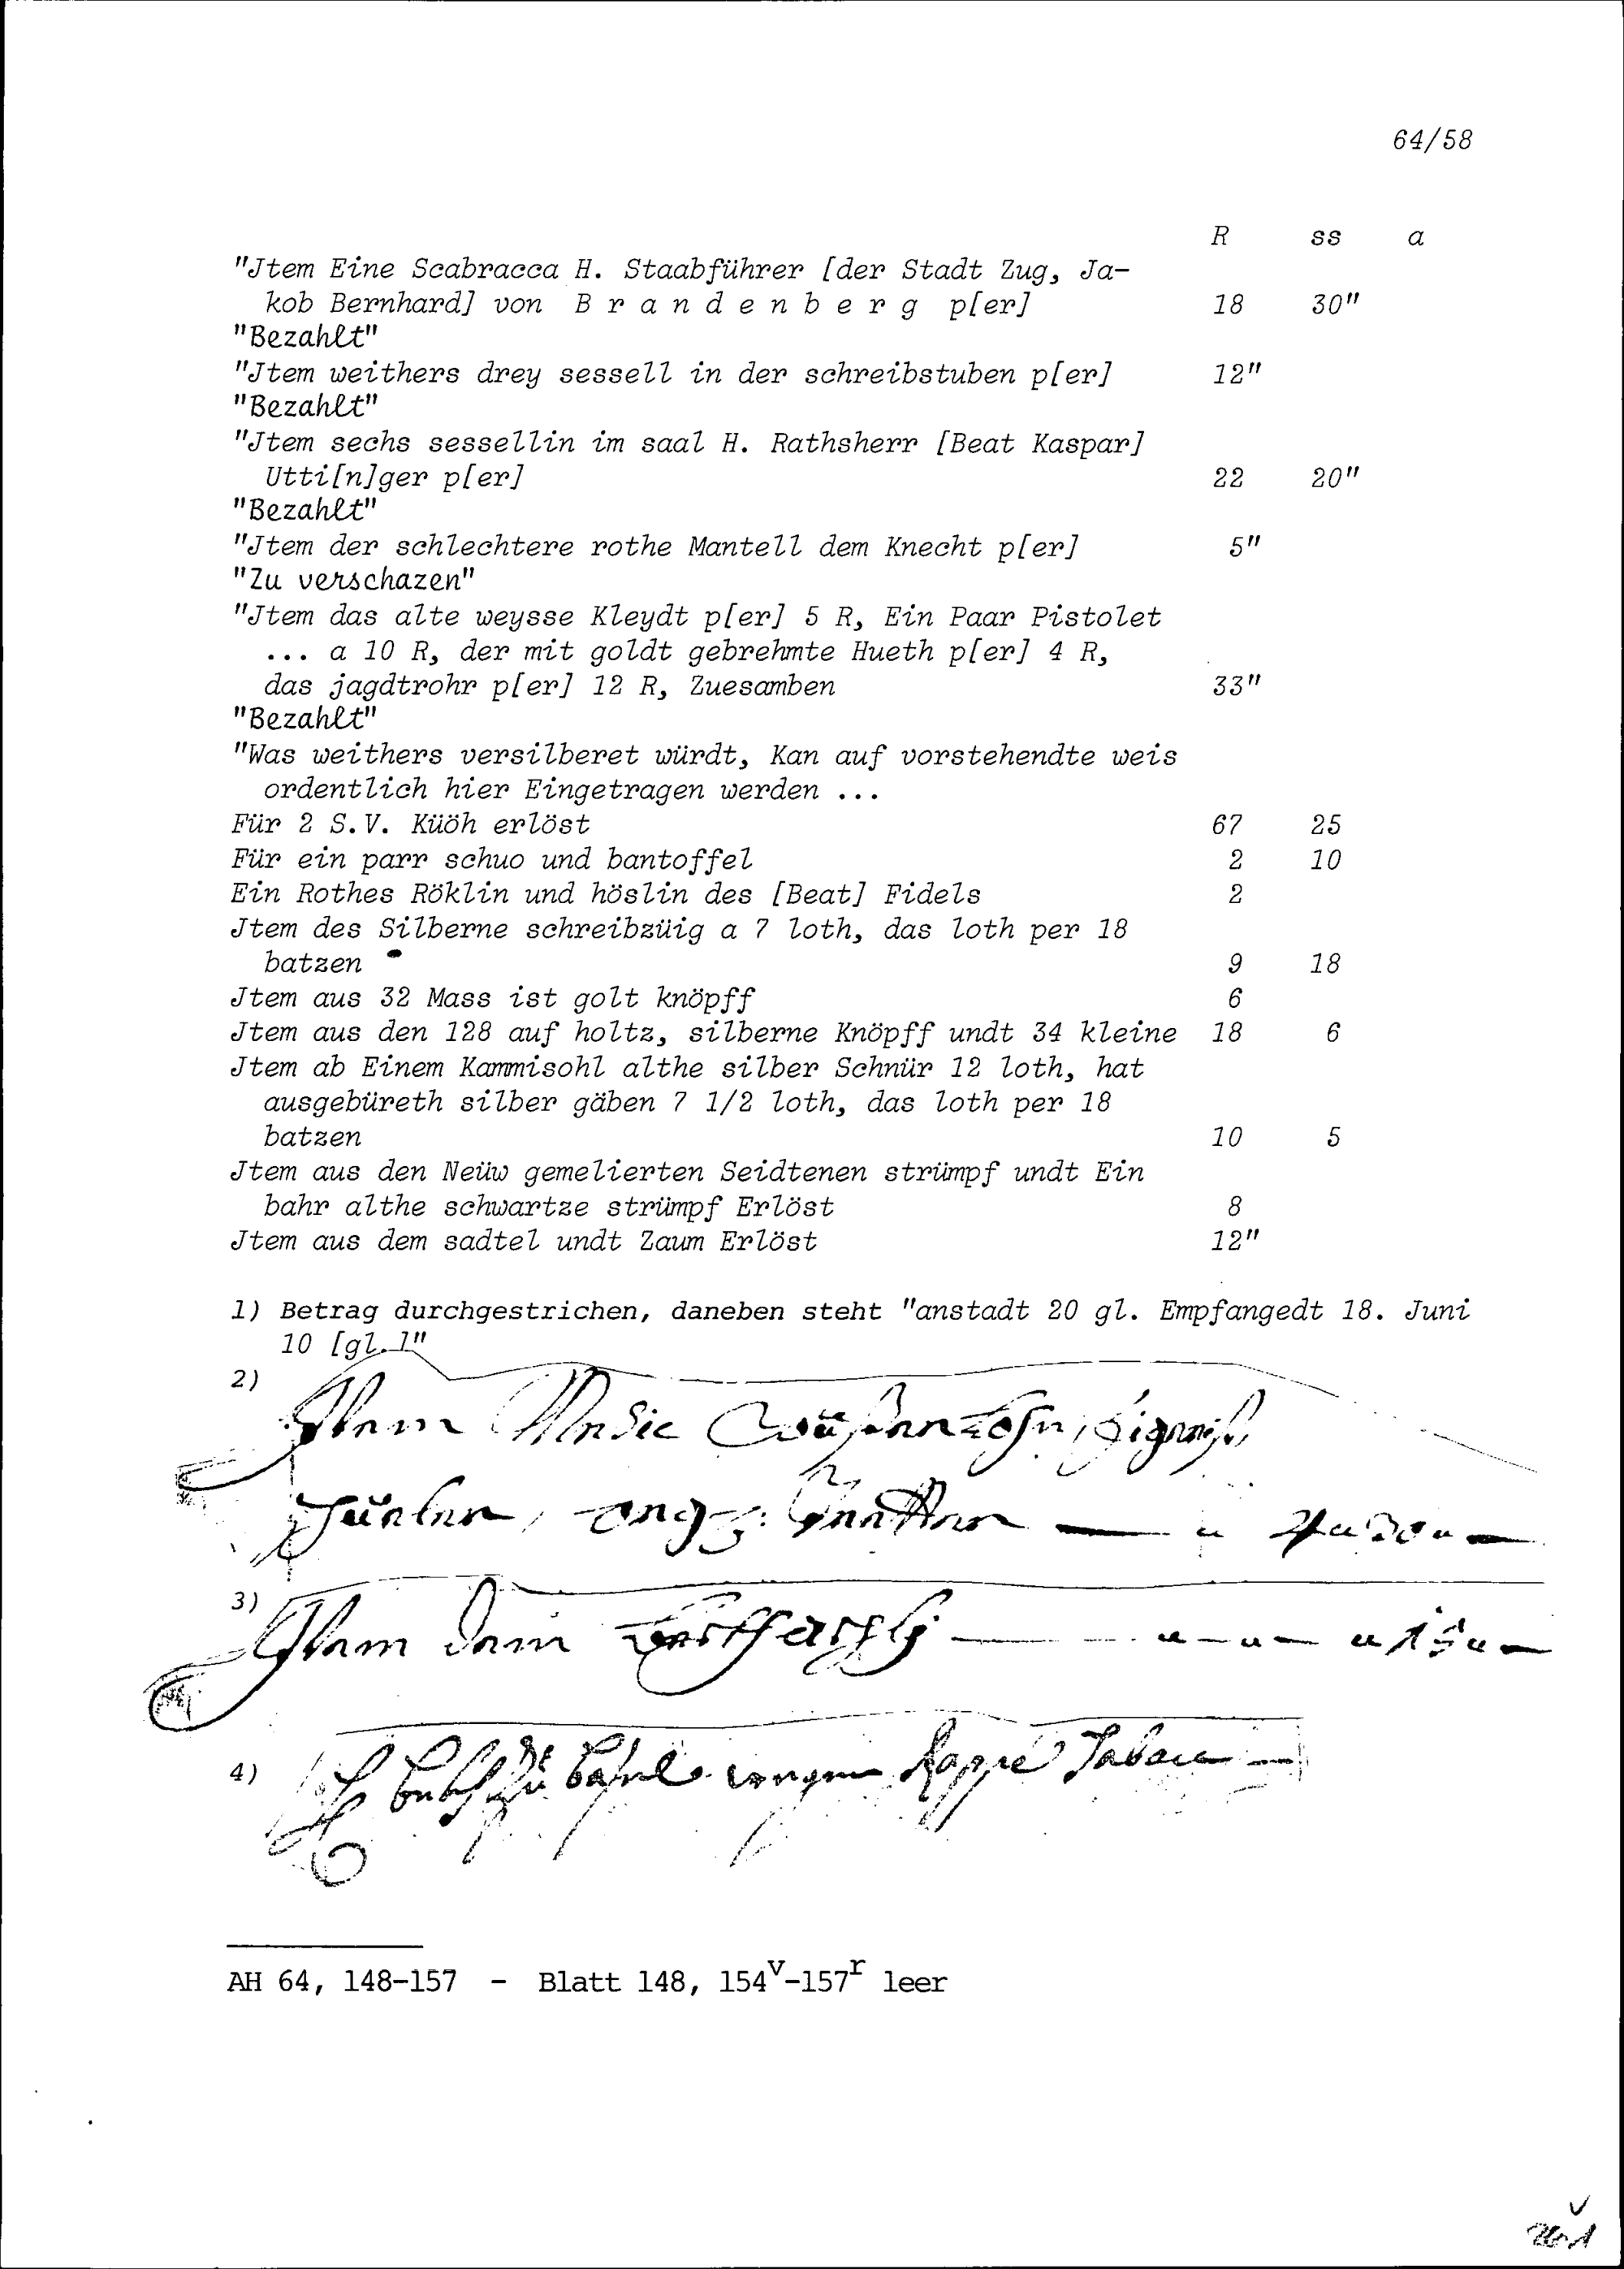 64/58
R ss a
"Jtem Eine Scabracca H. Staabführer [der Stadt Zug, Ja-
kob Bernhard] von B r a n d e n b e r g p[er] 18 30"
"Bezahlt"
"Jtem weithers drey sessell in der schreibstuben p[er] 12"
"Bezahlt"
"Jtem sechs sessellin im saal H. Rathsherr [Beat Kaspar]
Utti[n]ger p[er] 22 20"
"Bezahlt"
"Jtem der schlechtere rothe Mantell dem Knecht p[er] 5"
"Zu verschazen"
"Jtem das alte weysse Kleydt p[er] 5 R, Ein Paar Pistolet
... a 10 R, der mit goldt gebrehmte Hueth p[er] 4 R,
das jagdtrohr p[er] 12 R, Zuesamben 33"
"Bezahlt"
"Was weithers versilberet würdt, Kan auf vorstehendte weis
ordentlich hier Eingetragen werden ...
Für 2 S.V. Küöh erlöst 67 25
Für ein parr schuo und bantoffel 2 10
Ein Rothes Röklin und höslin des [Beat] Fidels 2
Jtem des Silberne schreibzüig a 7 loth, das loth per 18
batzen 9 18
Jtem aus 32 Mass ist golt knöpff 6
Jtem aus den 128 auf holtz, silberne Knöpff undt 34 kleine 18 6
Jtem ab Einem Kammisohl althe silber Schnür 12 loth, hat
ausgebüreth silber gäben 7 1/2 loth, das loth per 18
batzen 10 5
Jtem aus den Neüw gemelierten Seidtenen strümpf undt Ein
bahr althe schwartze strümpf Erlöst 8
Jtem aus dem sadtel undt Zaum Erlöst 12"
1) Betrag durchgestrichen, daneben steht "anstadt 20 gl. Empfangedt 18. Juni
10 [gl.]"
2)
3)
4) Rappé Taback
AH 64, 148-157 - Blatt 148, 154v-157r leer